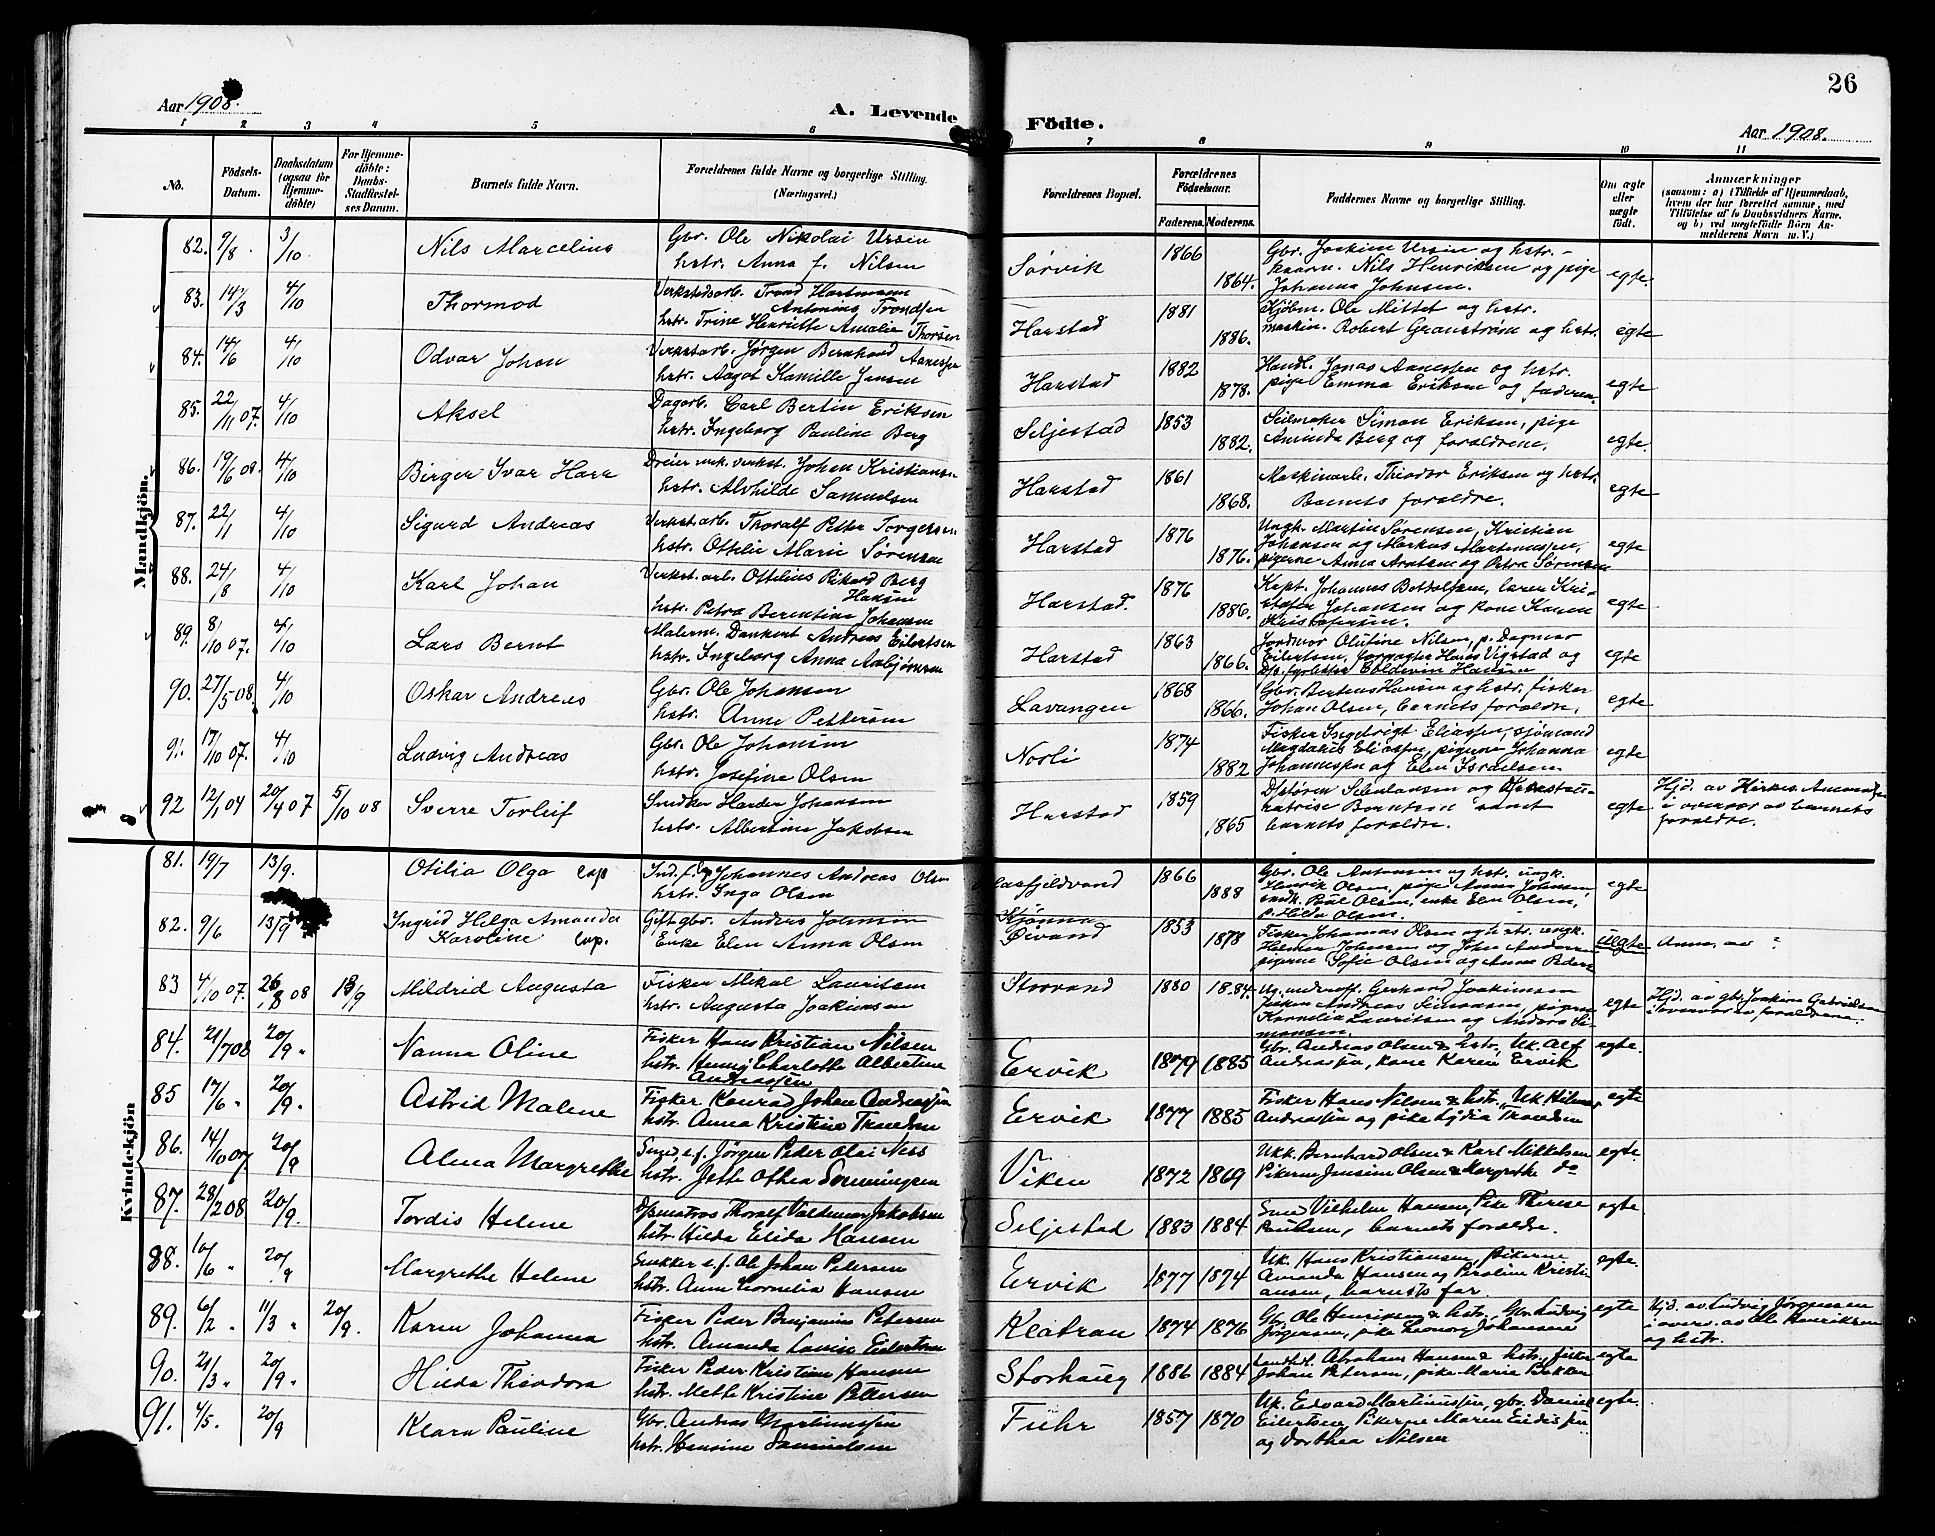 26
Aar 1908.
A. Levende Födte.
Aar 1908.
1 2 3 4 5 6 7 8 9 10 11
No.
Födsels-Datum.
Daabsdatum (ogsaa for Hjemmedöbte)
For Hjemmedöbte: Daabs-Stadfæstelses Datum.
Barnets fulde Navn.
Forældrenes fulde Navne og borgerlige Stilling.
(Næringsvei.)
Forældrenes Bopæl.
Forældrenes Födselsaar.
Faderens. Moderens.
Faddernes Navne og borgerlige Stilling.
Om ægte eller uægte født.
Anmærkninger
(saasom: a) i Tilfælde af Hjemmedaab, hvem der har forrettet samme, med Tilføielse af to Daabsvidners Navne, og b) ved uegtefödte Börn Anmelderens Navn m. V.)
Mandkjön.
82. 9/8. 3/10 Nils Marcelius Gbr. Ole Nikolai Ursin Sørvik 1866 Gbr. Joakim Ursin og hstr.
hstr. Anna f. Nilsen 1864. Nils Henriksen og pige Johanna Johnsen. egte
83. 14/3 4/10 Thormod Verkstedsarb. Trond Hartmann Antonius Trondsen Harstad 1881 Kjøbm. Ole Mittet og hstr.
hstr. Trine Henriette Amalia Thorsen 1886. maskin. Robert Granstrøm og hstr. egte
84. 14/6 4/10 Odvar Johan Verkstarb. Jørgen Bernhard Aanessen Harstad 1882 Handl. Jonas Aanessen og hstr.
hstr. Aagot Kamille Jensen 1878. pige Emma Eriksen og faderen. egte
85. 22/11 07. 4/10 Aksel Dagarb. Carl Bertin Eriksen Seljestad 1853 Seilmaker Simon Eriksen, pige
hstr. Ingeborg Pauline Berg 1882. Aminda Berg og forældrene. egte
86. 19/6 08. 4/10 Birger Ivar Harr Dreier mek. verkst. Johan Kristiansen Harstad 1861 Maskinarb. Theodor Eriksen og hstr.
hstr. Alvhilde Samuelsen 1868. Barnets forældre. egte
87. 22/1 4/10 Sigurd Andreas Verkst.arb. Thoralf Petter Torgersen Harstad 1876 Ungk. Martin Sørensen, Kristian
hstr. Ottilie Marie Sørensen 1876. Johansen og Markus Martinussen, pigerne Anna Arntsen og Petra Sørensen egte
88. 24/8 4/10 Karl Johan Verkst.arb. Ottilius Rikard Berg Hansen Harstad. 1876 Kapt. Johannes Bottolfsen, lærer Kri-
hstr. Petra Berentine Johansen 1886. stofer Johansen og kone Karen Kristofersen. egte
89. 8/10 07. 4/10 Lars Bernt Malerm. Dankert Andreas Eilertsen Harstad 1863 Jordmor Olufine Nilsen, p. Dagmar
hstr. Ingeborg Anna Asbjørnsen 1866. Eilertsen, Hans Vigstad og Hansen egte
90. 27/5 08. 4/10 Oskar Andreas Gbr. Ole Johansen Lavangen 1868 Gbr. Berteus Hansen og hstr. fisker
hstr. Anne Pettersen 1866. Johan Olsen, barnets forældre. egte
91. 17/10 07. 4/10 Ludvig Andreas Gbr. Ole Johansen Norli 1874 Fisker Ingebrigt Eliassen, sjømand
hstr. Josefine Olsen 1882 Magdalius Eliassen, pigerne Johanna Johannessen og Elen Israelsen. egte
92 12/1 04 20/4 07 5/10 08 Sverre Torleif Snedker Harder Johansen Harstad 1859
hstr. Albertine Jakobsen 1865 Berntsen samt barnets forældre. egte Hjd. av i overvær av barnets forældre.
Kvindekjön
81. 19/7 13/9. Otilia Olga Johannes Andreas Olsen Gasfjeldvand 1866 Gbr. Ole Antonsen og hst. ungk.
hstr. Inga Olsen 1888 Henrik Olsen, pige Anna Johansen, Olsen, enke Elen Olsen, p. Hilda Olsen. egte
82. 9/6 13/9 Ingrid Helga Amanda Karoline Gift gbr. Anders Johnsen Øivand 1853 Fisker Johannas Olsen og hstr. ungk.
Enke Elen Anna Olsen 1878 Helmer Johnsen og John Andersen pigerne Sofie Olsen og Anna Peders uegte Anm. av ?
83 4/10 07. 26/8 08 13/9 Mildrid Augusta Fisker Mikal Lauritsen Storvand 1880 1884. Gerhard Joakimsen
hstr. Augusta Joakimsen fisker Andreas Simonsen, pigerne Kornelia Lauritsen og Andora Simonsen egte Hjd. av gbr. Joakim Gabrielsen i overvær av forældrene.
84. 21/7 08 20/9 " Nanna Oline Fisker Hans Kristian Nilsen Ervik 1879 1885 Gbr. Andreas Olsen & hstr, Uk. Alf
hstr. Henny Charlotte Albertine Andreassen Andreassen, kone Karen Ervik egte.
85 17/6 " 20/9. Astrid Malene Fisker Konrad Johan Andreassen Ervik 1877 1885 Fisker Hans Nilsen & hstr., Uk Hilmar
hstr. Anna Kristine Trondsen Andreassen og pike Lydia Trondsen egte
86. 14/10 07 20/9 Alma Margrethe Jørgen Peder Olai Ness Viken 1872 1869 Ukk. Bernhard Olsen & Karl Mikkelsen
hstr. Jette Othea Sønningsen Pikerne Jensine Olsen & Margrethe do egte.
87. 28/2 08 20/9. Tordis Helene Thoralf Valdemar Jakobsen Seljestad 1883 1884 Smed Vilhelm Hansen, Pike Therese
hstr. Hilda Elida Hansen Paulsen, barnets forældre. egte
88. 10/6 " 20/9 Margrethe Helene Snekker s. f. Ole Johan Petersen Ervik 1877 1874 Uk. Hans Kristiansen, pikerne
hstr. Anne Cornelia Hansen Amanda Hansen og Peroline Kristiansen, barnets far. egte.
89. 6/2 " 11/3 " 20/9. Karen Johanna Fisker Peder Benjamin Petersen Kløtran 1874 1876 Gbr. Ole Henriksen & hstr, Gbr. Ludvig
hstr. Amanda Lovise Eilertsen Jørgensen, pike Leonora Johansen egte Hjd. av Ludvig Jørgensen i overv. av Ole Henriksen og hstr.
90. 21/3 " 20/9 " Hilda Theodora Fisker Peder Kristian Hansen Storhaug 1886 1884 Abraham Hansen & hstr, fisker
hstr. Methe Kristine Petersen Johan Petersen, pike Marie egte
91. 4/5. 20/9 Klara Pauline Gbr. Andreas Martinussen Fuhr 1857 1870 Uk. Edvard Martinussen, gbr. Daniel
hstr. Hansine Danielsen Eilertsen, Pikerne Maren og Dorthea Nilsen egte.